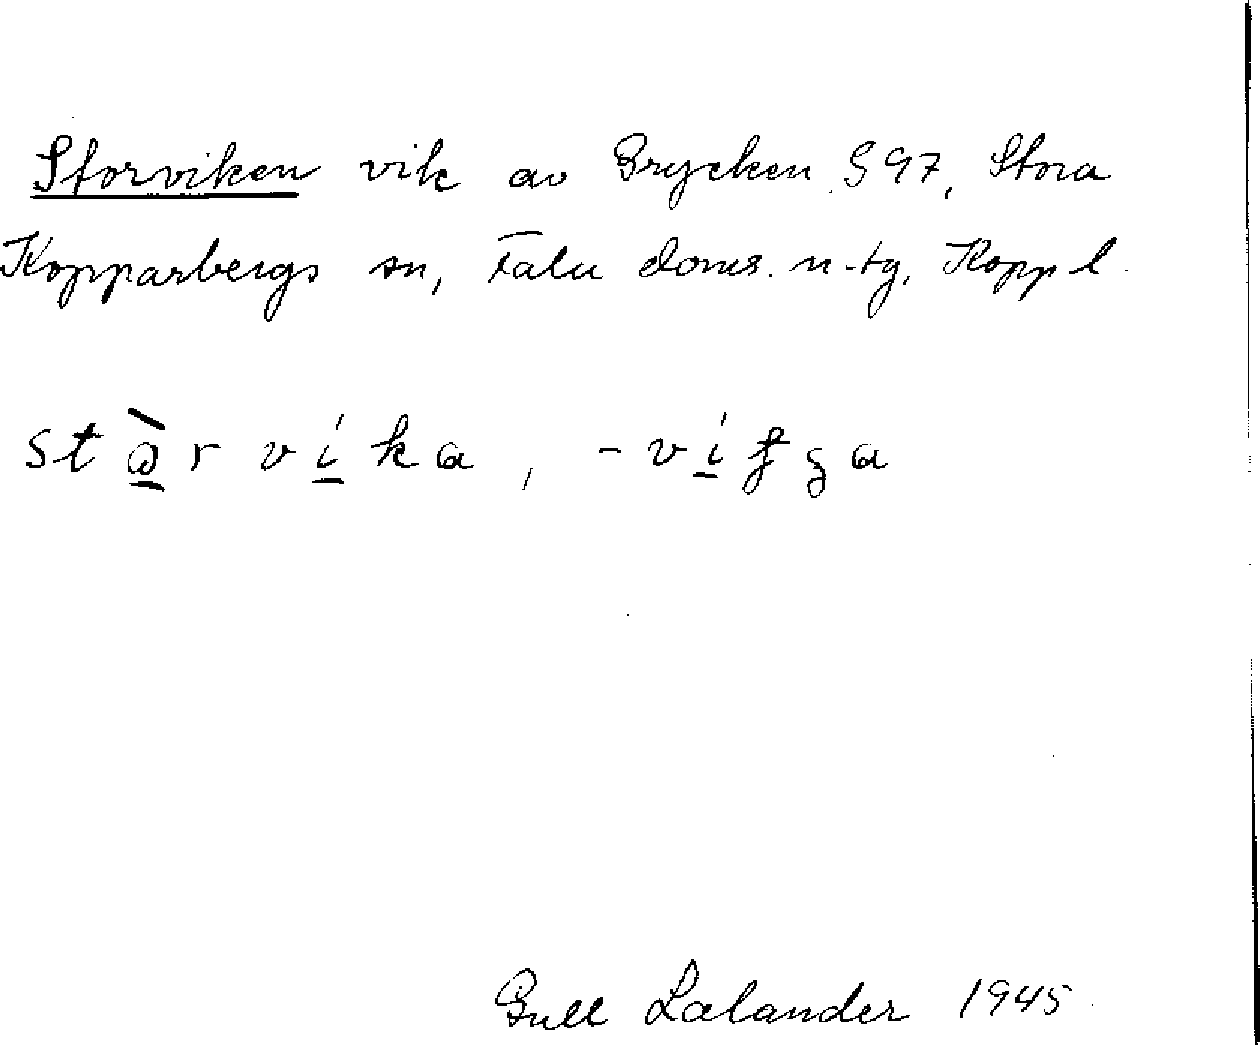 Storviken vik av Grycken S 97, Stora
Kopparbergs sn, Falu doms. n-tg, Kopp l.
stàr vika, -viʒa
Gull Lalander 1945